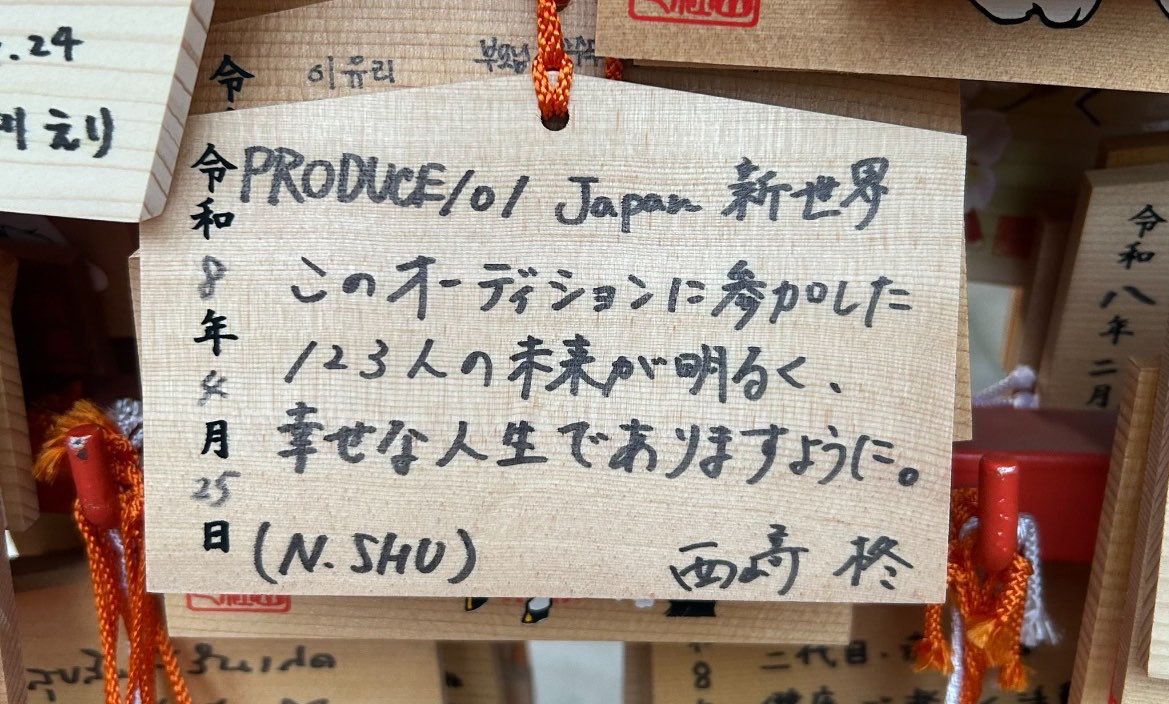 .24
えり
이유리
부모님
令
PRODUCE101 Japan 新世界
このオーディションに参加した
123人の未来が明るく、
幸せな人生でありますように。
(N.SHU) 西﨑 柊
令和8年4月25日
令和八年二月
8
二代目